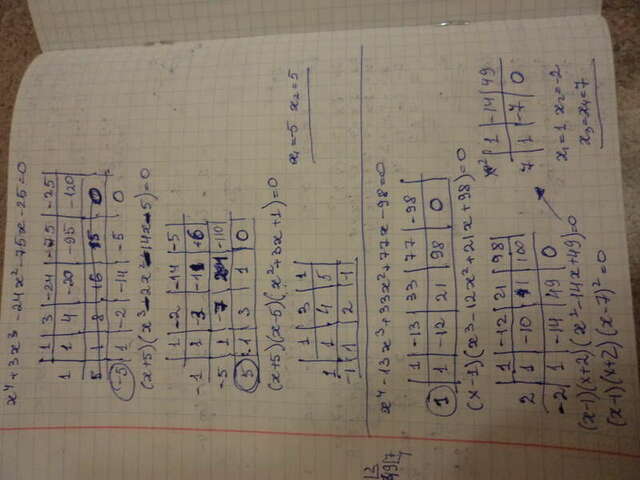 x⁴+3x³-24x²-75x-25=0
| 1 | 3 | -24 | -75 | -25
1 | 1 | 4 | -20 | -95 | -120
-5 | 1 | -2 | -14 | -5 | 0
(x+5)(x³-2x²-14x-5)=0
| 1 | -2 | -14 | -5
5 | 1 | 3 | 1 | 0
(x+5)(x-5)(x²+3x+1)=0
| 1 | 3 | 1
1 | 1 | 4 | 5
-1 | 1 | 2 | -1
x₁=-5 x₂=5
x⁴-13x³+33x²+77x-98=0
| 1 | -13 | 33 | 77 | -98
1 | 1 | -12 | 21 | 98 | 0
(x-1)(x³-12x²+21x+98)=0
| 1 | -12 | 21 | 98
2 | 1 | -10 | 1 | 100
-2 | 1 | -14 | 49 | 0
(x-1)(x+2)(x²-14x+49)=0
(x-1)(x+2)(x-7)²=0
| 1 | -14 | 49
7 | 1 | -7 | 0
x₁=1 x₂=-2
x₃=x₄=7